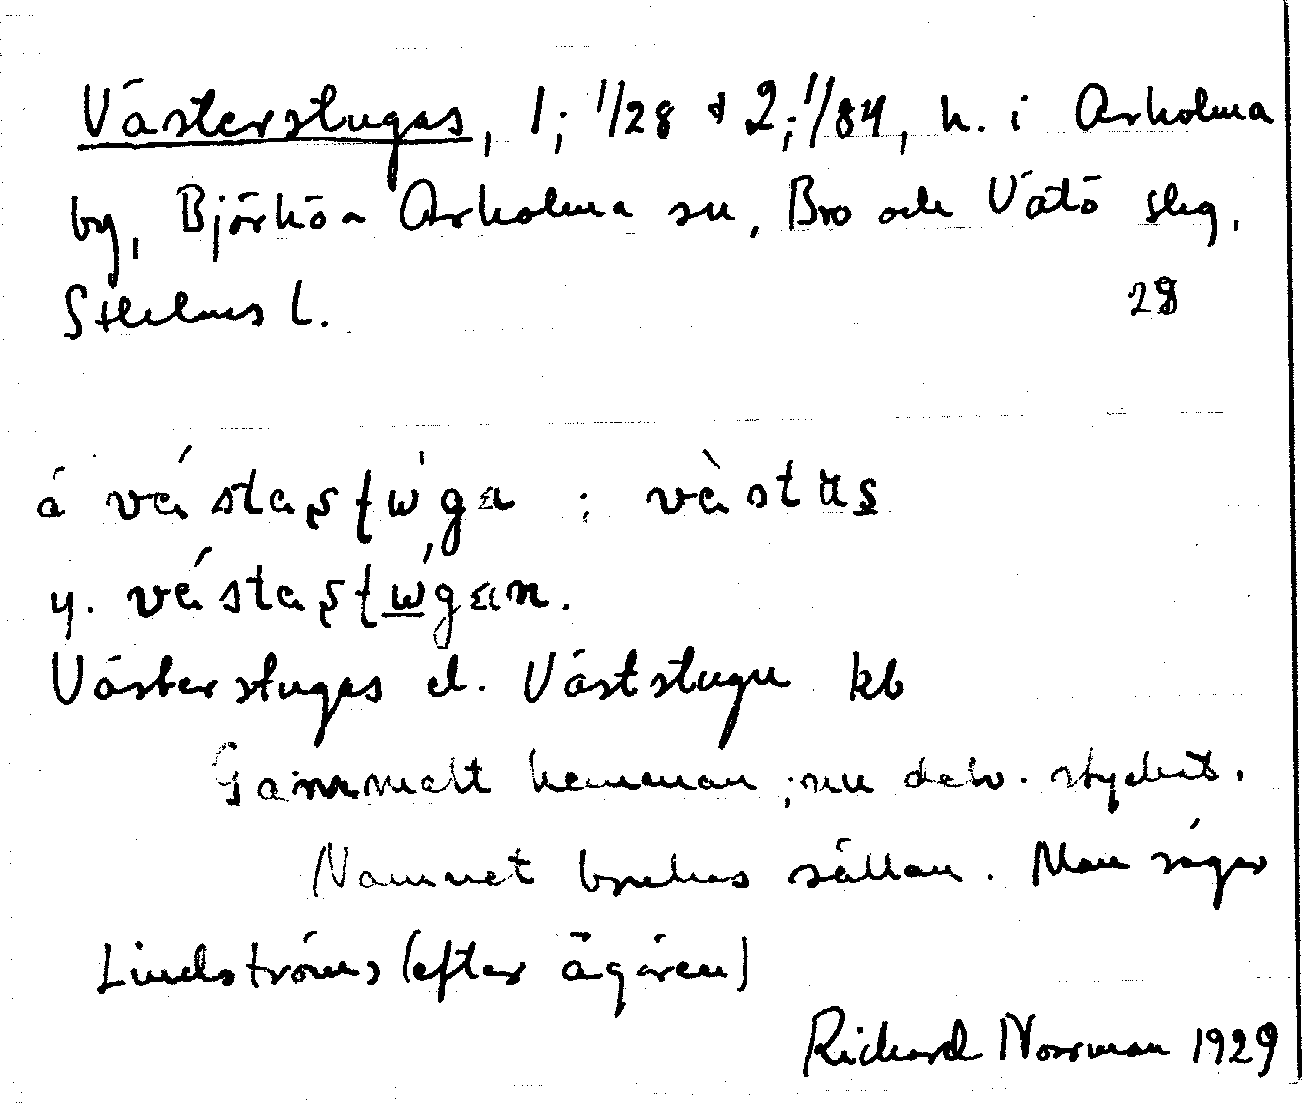 Västerstugas, 1; 1/28 & 2; 1/84, h. i Arholma
by, Björkö a Arholma sn, Bro och Vätö slg,
Sthlms l. 28
å véstaʂʈẃga ; vèstas
y. véstaʂʈẃgan.
Västerstugas el. Väststugu kb
Gammalt hemman; nu delv. styckat.
Namnet brukas sällan. Man säger
Lindströms (efter ägaren)
Richard Norrman 1929